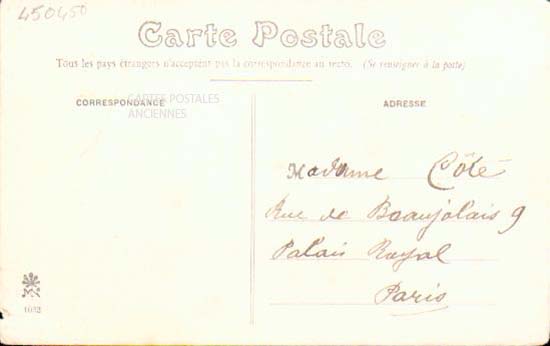 450450
Carte Postale
Tous les pays étrangers n'acceptent pas la correspondance au recto. (Se renseigner à la poste)
CORRESPONDANCE
CARTES POSTALES
ANCIENNES
ADRESSE
Madame Côté
Rue de Beaujolais 9
Palais Royal
Paris
1032